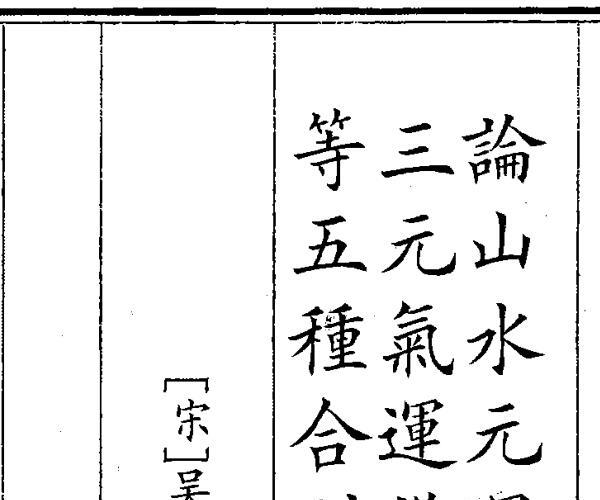 論山水元
三元氣運
等五種合
[宋]吴